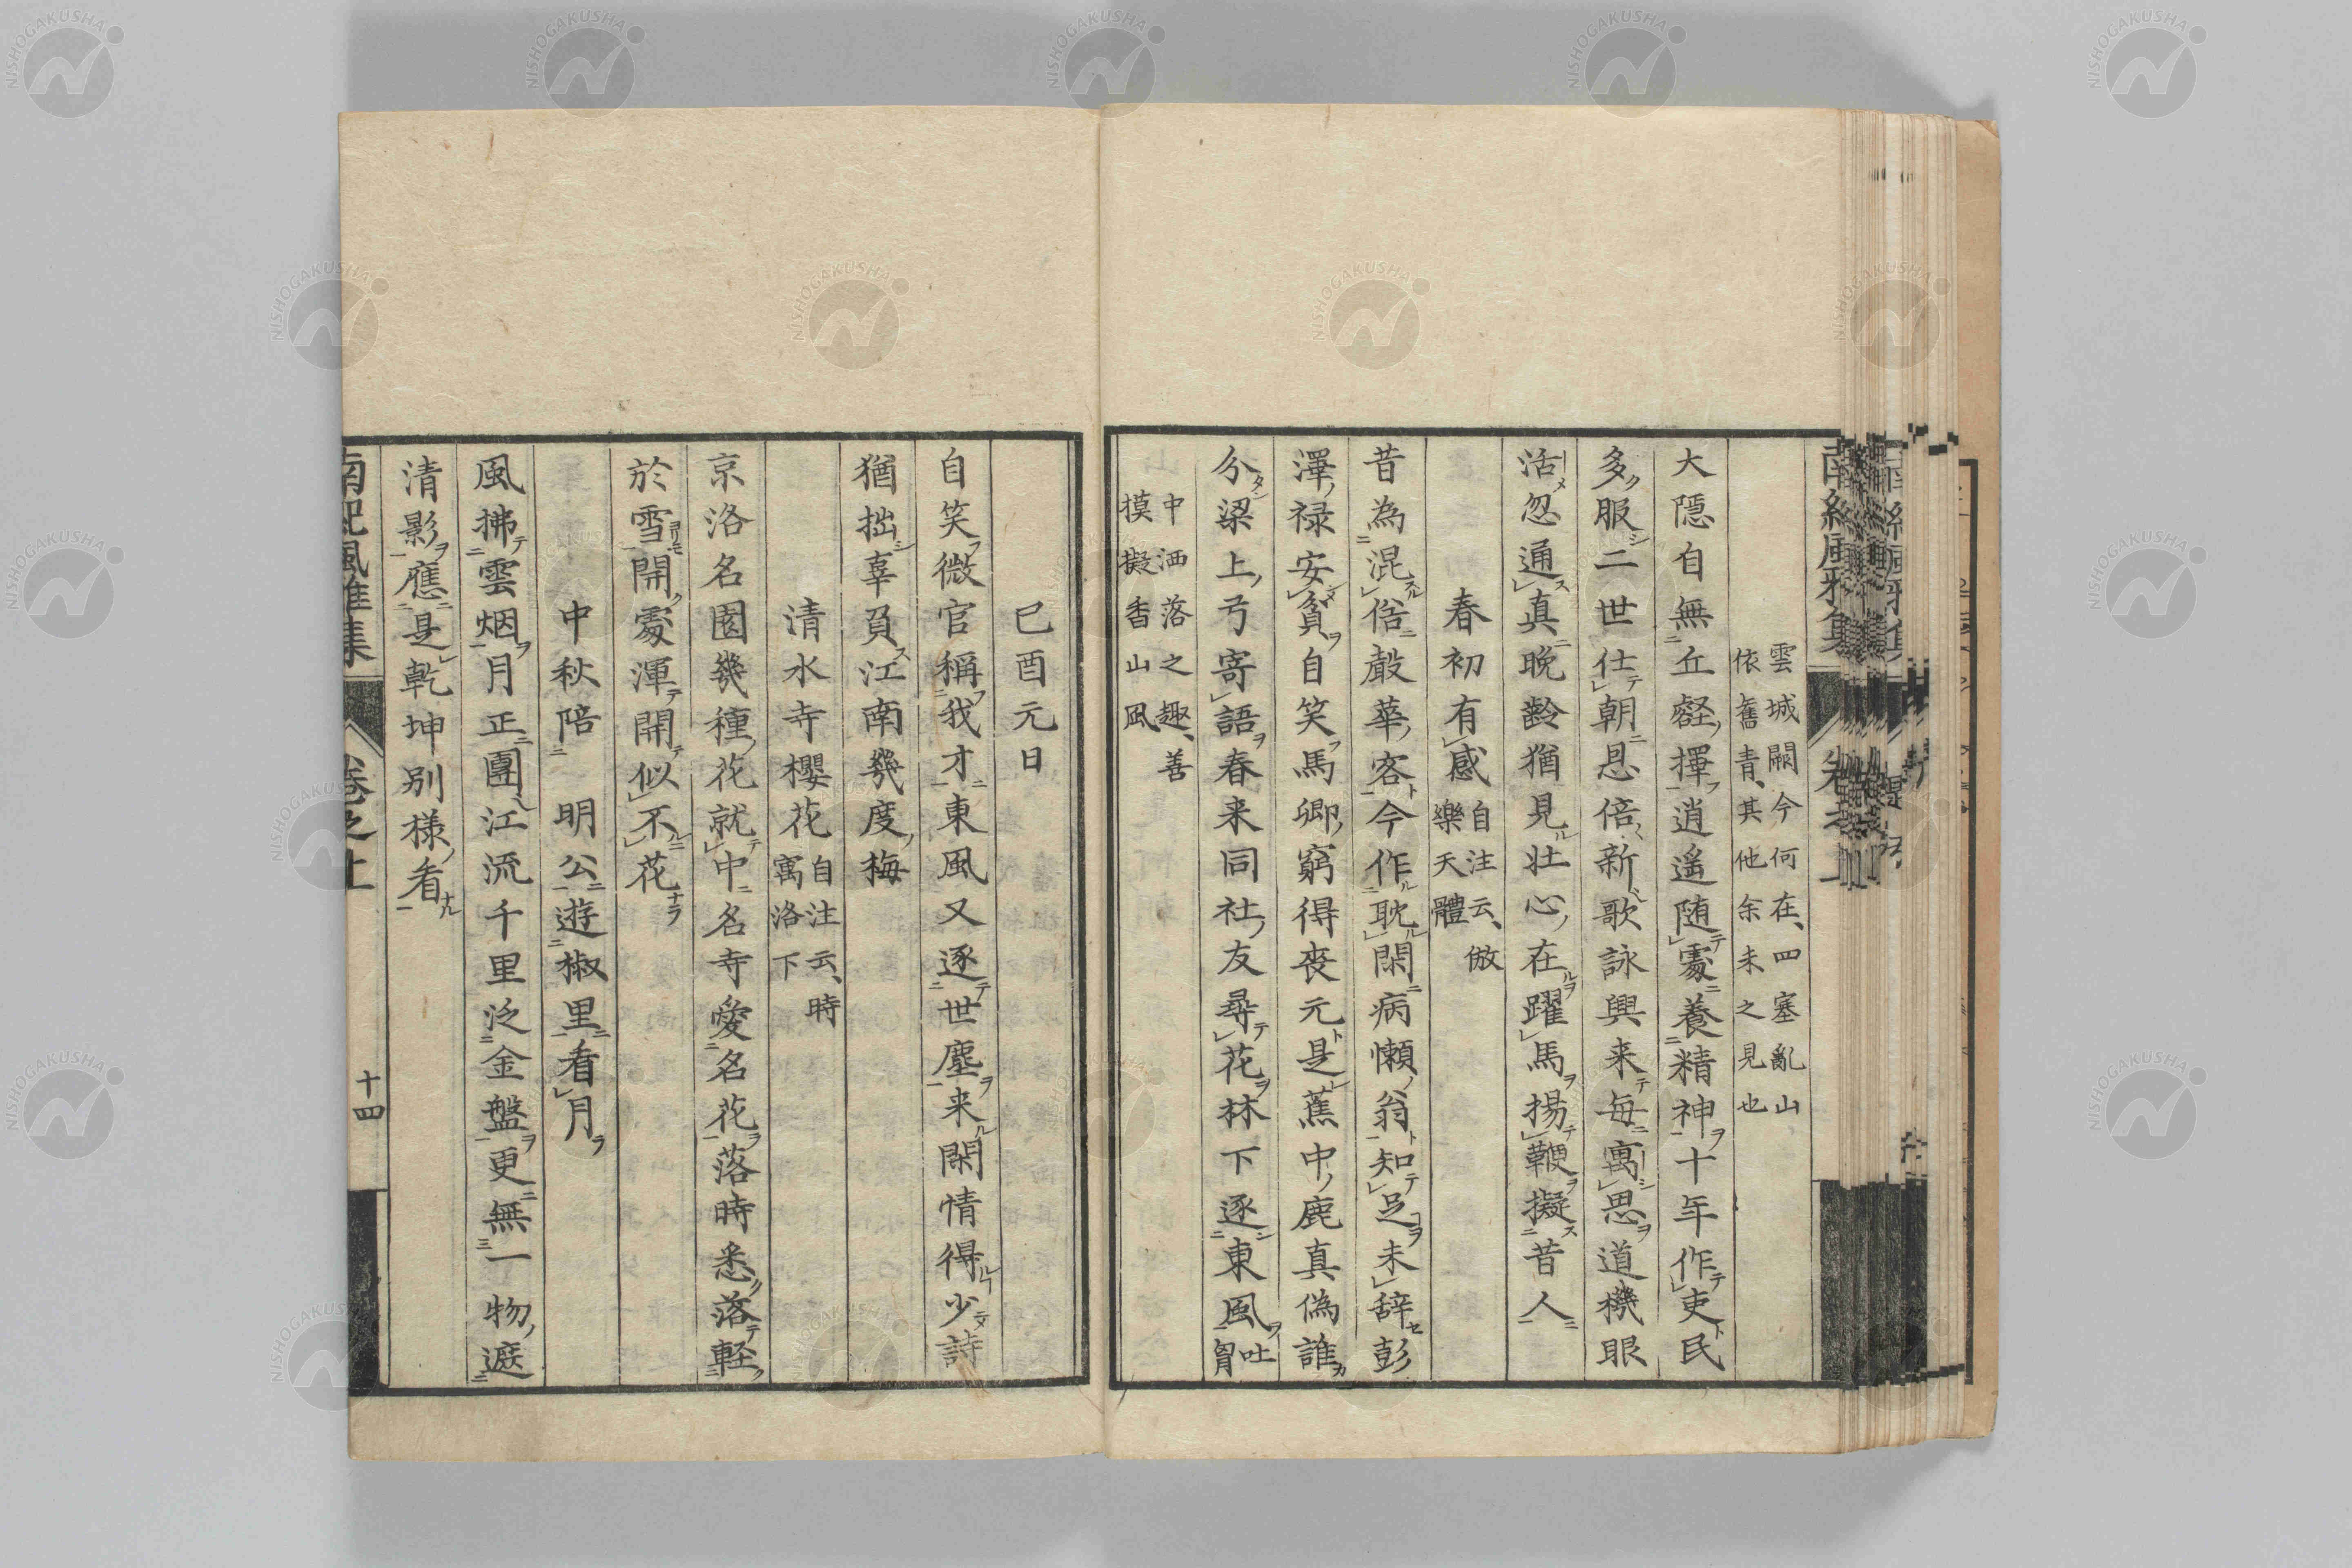 雲城闕今何在、四塞亂山
依舊青、其他余未之見也
大隠自無丘壑揮逍遥随處養精神十年作吏民
多服二世仕朝恩倍新歌詠興来毎寓思道機眼
活忽通真晩齢猶見壮心在躍馬揚鞭擬昔人
春初有感
自注云、倣
樂天體
昔為混俗縠華客今作耽閑病懶翁知足未辞彭
澤禄安貧自笑馬卿窮得喪元是蕉中鹿真偽誰
分梁上弓寄語春来同社友尋花林下逐東風
吐胷
中洒落之趣、善
摸擬香山風
己酉元日
自笑微官稱我才東風又逐世塵来閑情得少詩
猶拙辜負江南幾度梅
清水寺櫻花
自注云、時
寓洛下
京洛名園幾種花就中名寺愛名花落時悉落軽
於雪開處渾開似不花
中秋陪 明公遊椒里看月
風拂雲烟月正團江流千里泛金盤更無一物遮
清影應是乾坤別様看
南紀風雅集
卷之上
十四